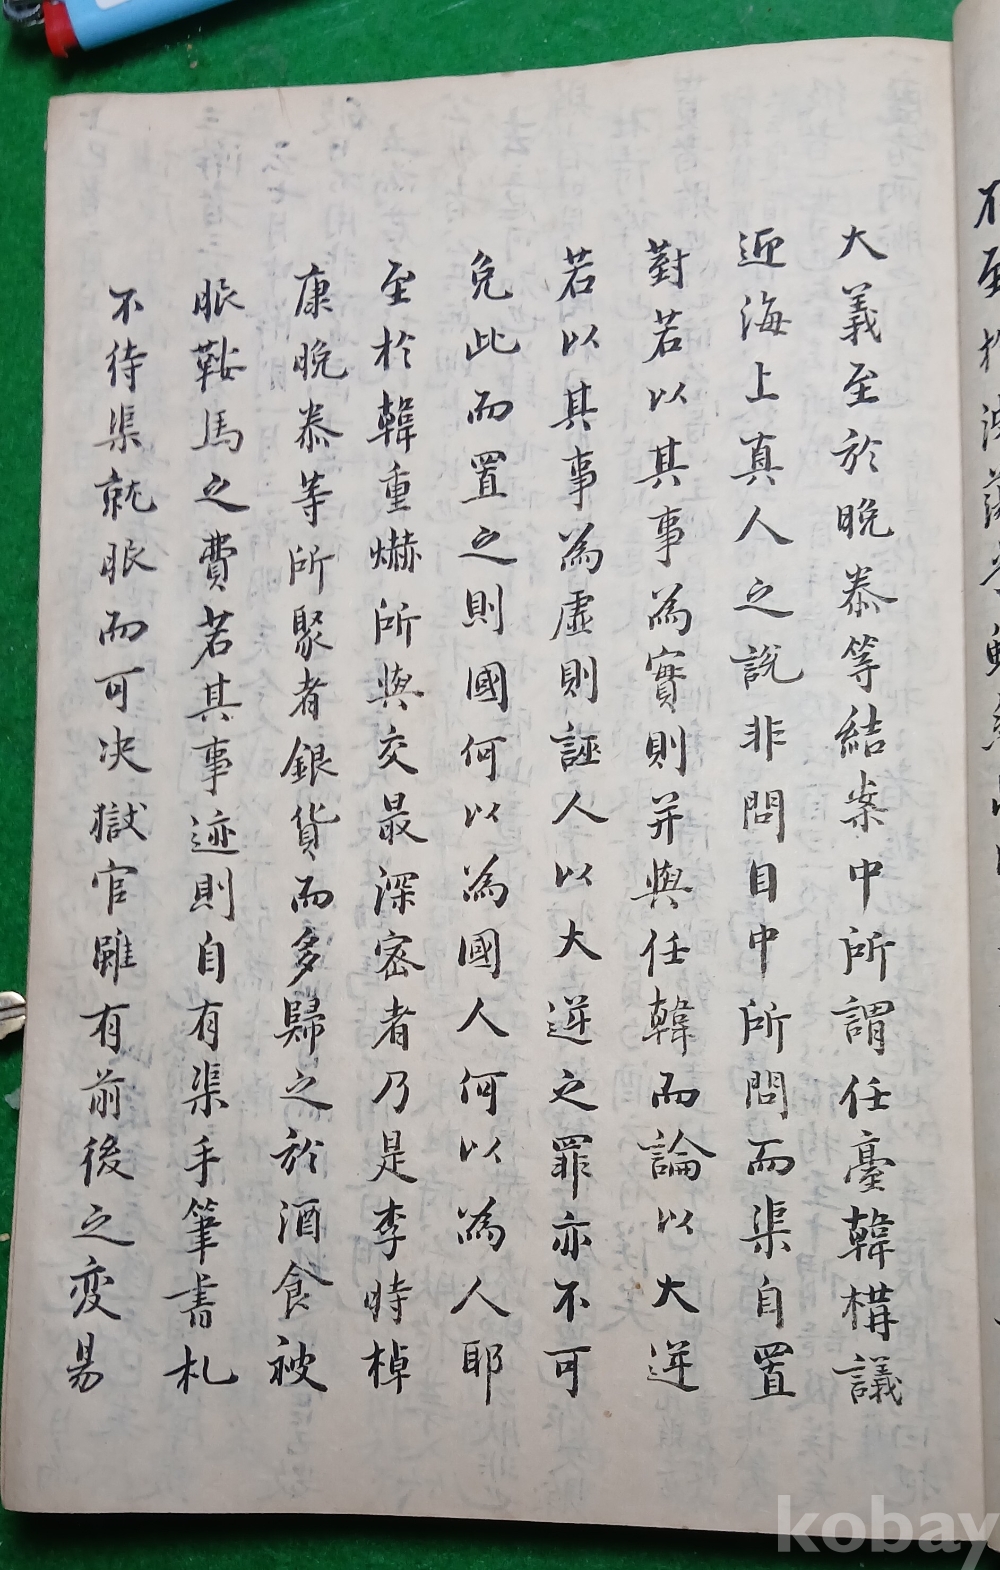 大義至於晩泰等結案中所謂任臺韓構議
迎海上真人之說非問目中所問而渠自置
對若以其事為實則并與任韓而論以大逆
若以其事為虛則誣人以大逆之罪亦不可
免此而置之則國何以為國人何以為人耶
至於韓重爀所與交最深密者乃是李時棹
康晩泰等所聚者銀貨而多歸之於酒食被
服鞍馬之費若其事迹則自有渠手筆書札
不待渠就服而可决獄官雖有前後之変易
kobay